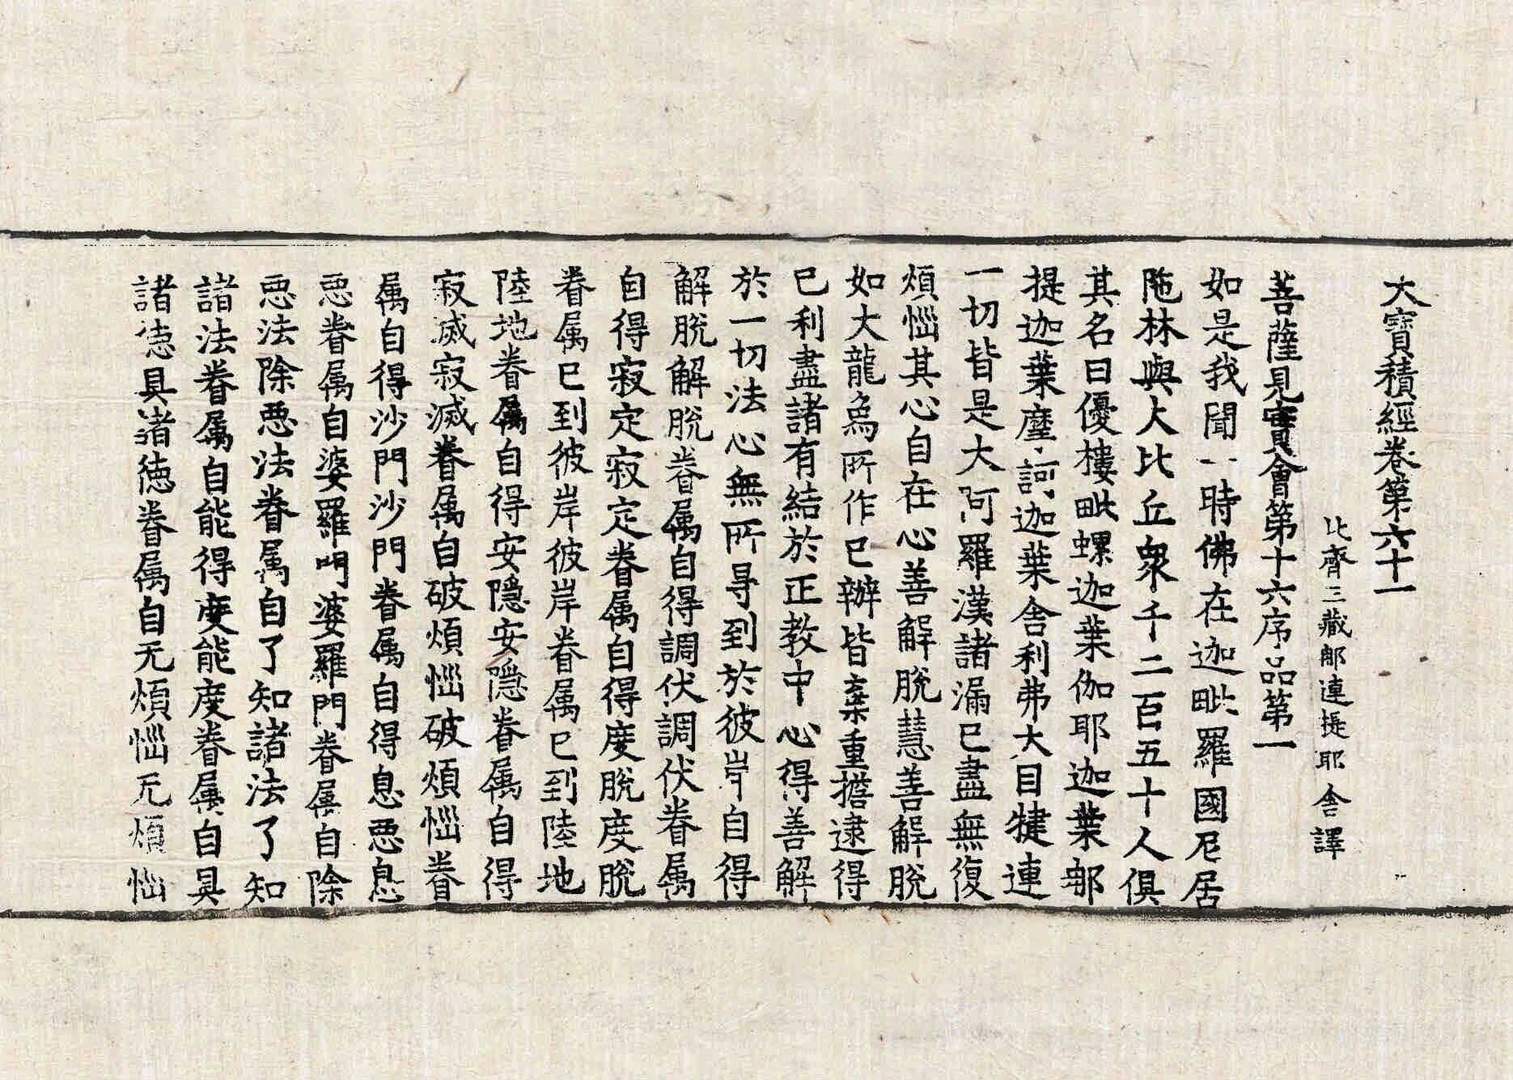 大寶積經卷第六十一
比齊三藏郍連提耶舍譯
菩薩見實會第十六序品第一
如是我聞一時佛在迦毗羅國尼居
陁林與大比丘衆千二百五十人俱
其名曰優樓毗螺迦葉伽耶迦葉那
提迦葉摩訶迦葉舍利弗大目揵連
一切皆是大阿羅漢諸漏已盡無復
煩惱其心自在心善解脫慧善解脫
如大龍烏所作已辦皆棄重擔逮得
已利盡諸有結於正教中心得善解
於一切法心無所㝵到於彼岸自得
解脫解脫眷属自得調伏調伏眷属
自得寂定寂定眷属自得度脫度脫
眷属已到彼岸彼岸眷属已到陸地
陸地眷属自得安隱安隱眷属自得
寂滅寂滅眷属自破煩惱破煩惱眷
属自得沙門沙門眷属自得息惡息
惡眷属自婆羅門婆羅門眷属自除
惡法除惡法眷属自了知諸法了知
諸法眷属自能得度能度眷属自具
諸德具諸德眷属自无煩惱无煩惱